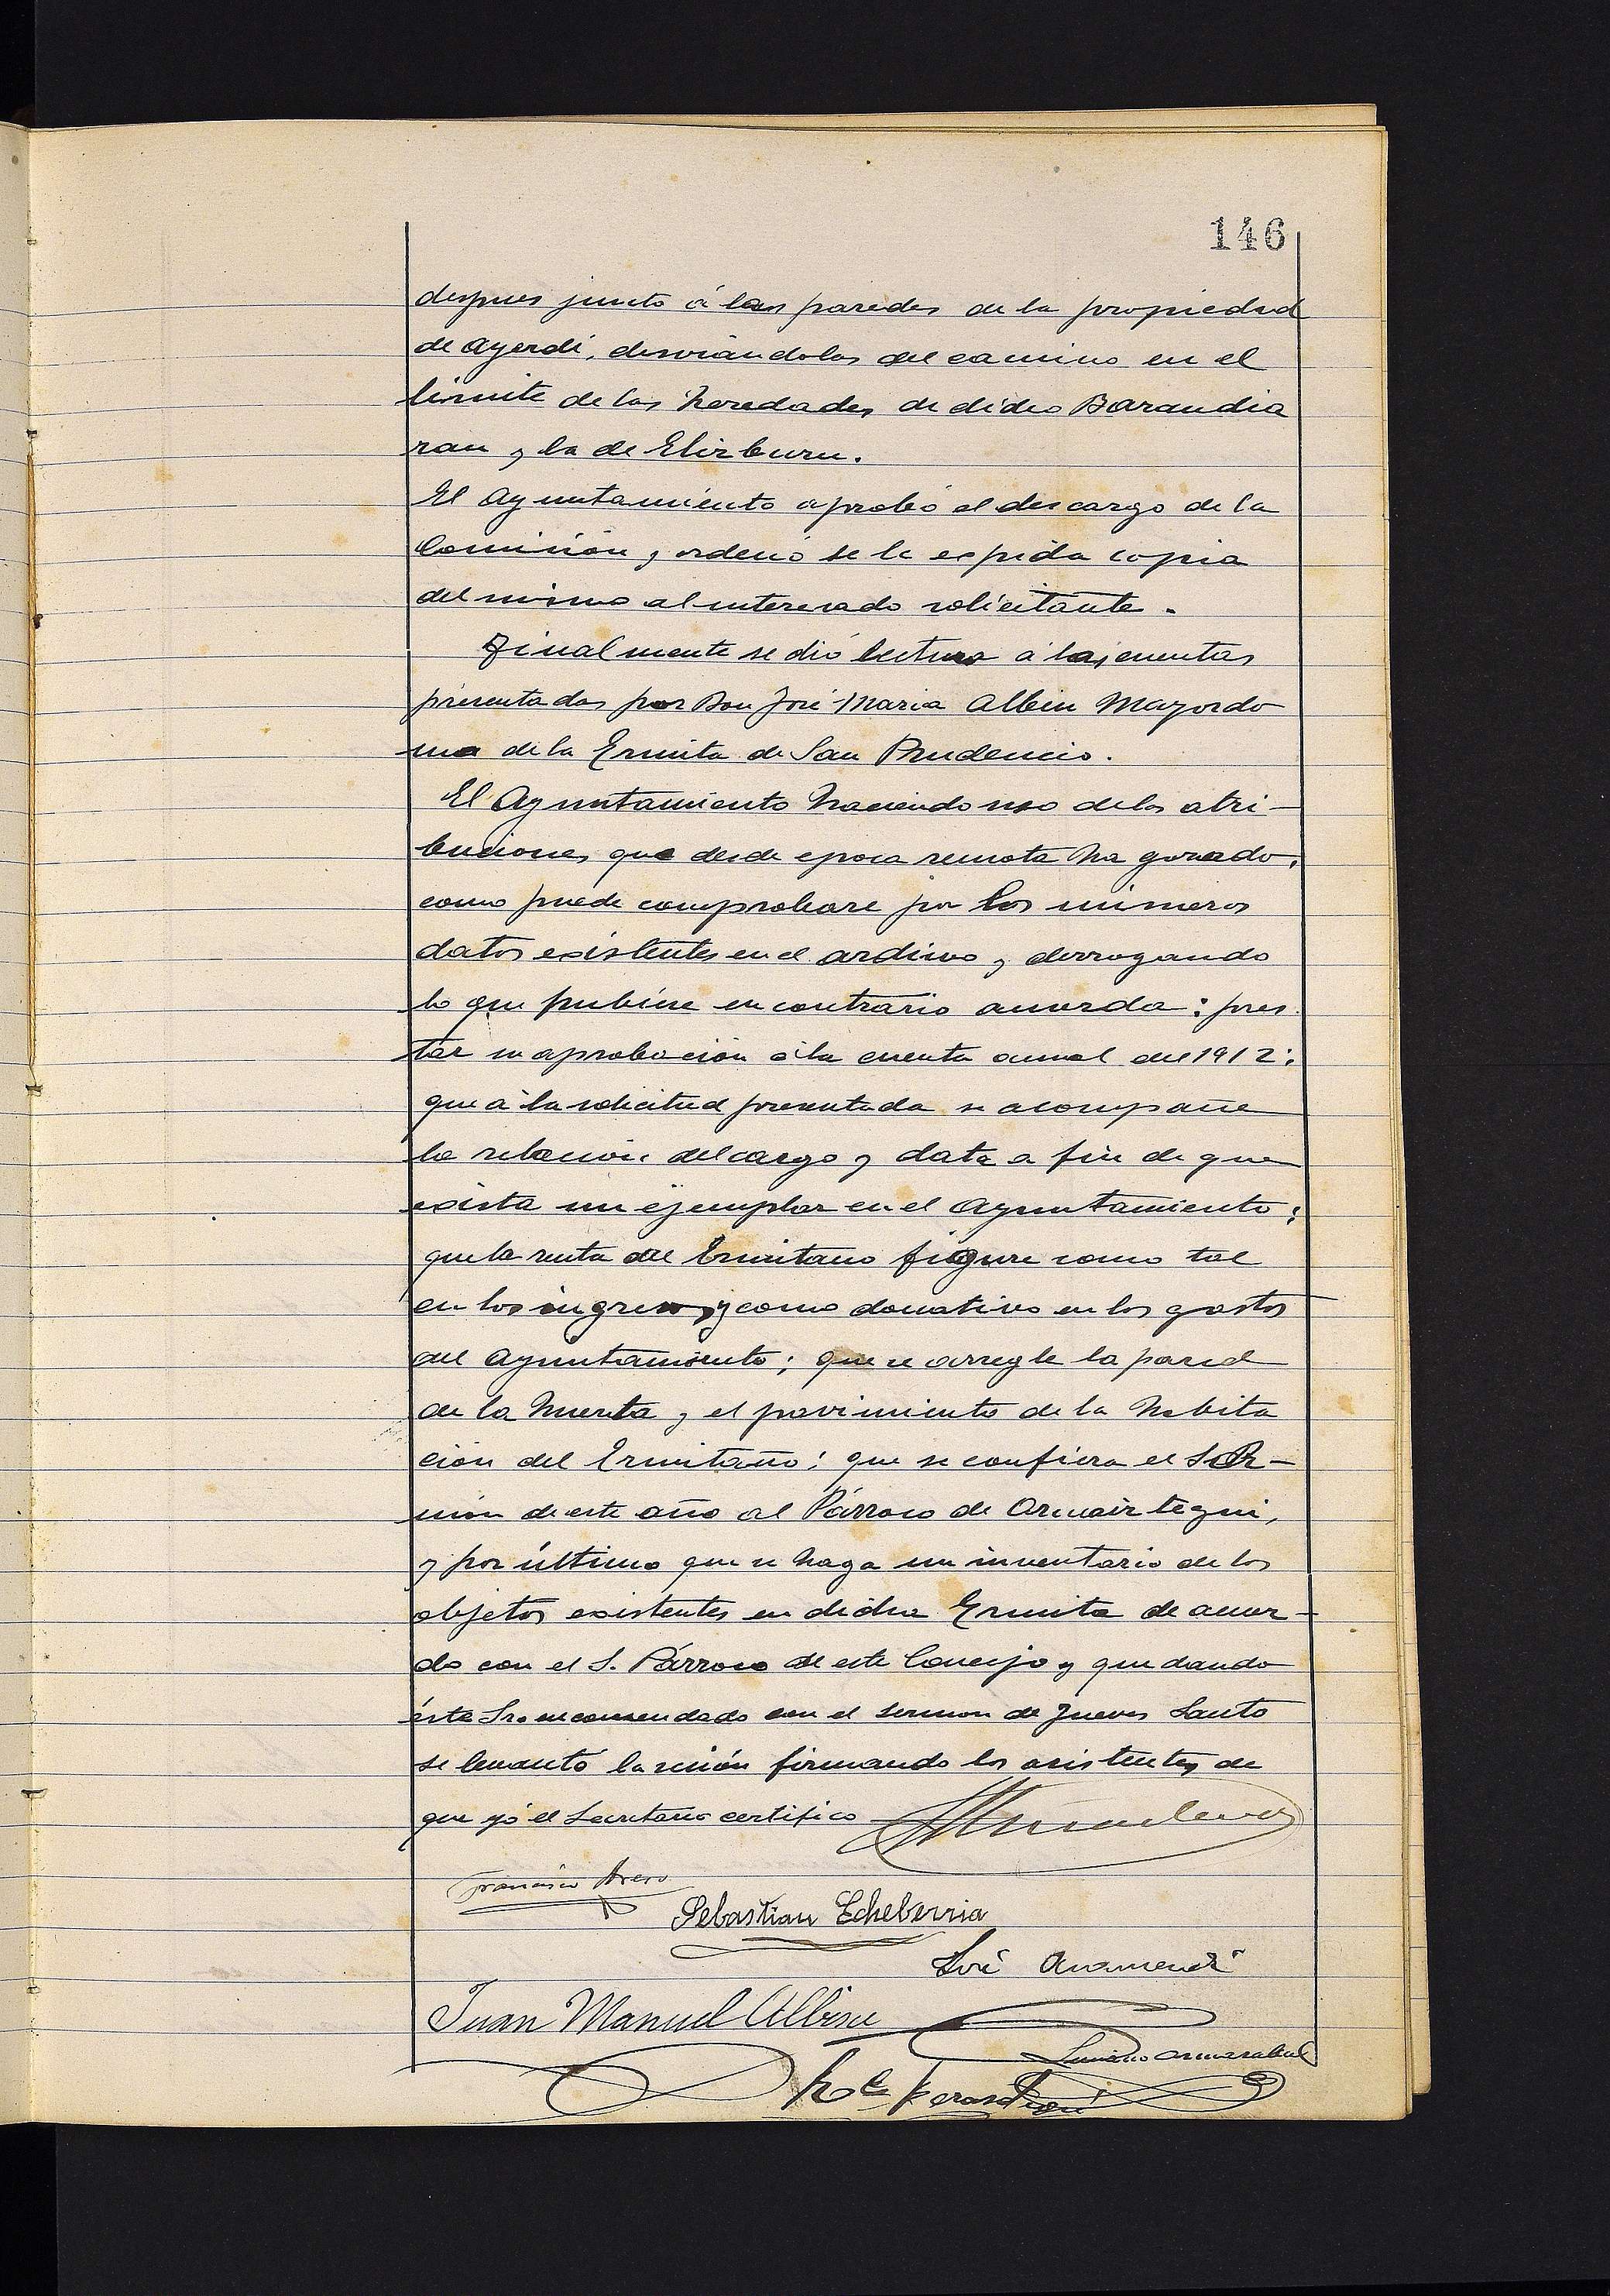 146
despues junto á las paredes de la propiedad
de Ayerdi, desviándolas del camino en el
límite de las heredades de dicho Barandia
ran y la de Elizburu.
El Ayuntamiento aprobó el descargo de la
Comisión y ordenó se le expida copia
del mismo al interesado solicitante.
Finalmente se dió lectura á las cuentas
presentadas por Don José Maria Albisu Mayordo
mo de la Ermita de San Prudencio.
El Ayuntamiento haciendo uso de las atri-
buciones que desde epoca remota ha gozado,
como puede comprobarse por los números
datos existentes en el archivo y derrogando
lo que hubiese en contrario acuerda: pres
tar su aprobación á la cuenta anual del 1912;
que á la solicitud presentada se acompañe
la relacion del cargo y data a fin de que
exista un ejemplar en el Ayuntamiento;
que la renta del Ermitano figure como tal
en los ingresos y como donativo en los gastos
del Ayuntamiento; que se arregle la pared
de la huerta y el pavimiento de la habita
ción del Ermitaño; que se confiera el Ser-
món de este año al Párroco de Ormaiztegui,
y por último que se haga un inventario de los
objetos existentes en dicha Ermita de acuer-
do con el S. Párroco de este Concejo y quedando
éste Sr. encomendado con el sermon de Jueves Santo
se levantó la sesión firmando los asistentes de
que yó el Secretario certifico
Francisco
Sebastian Echeberria
José Aramendi
Juan Manuel Albisu
Luciano